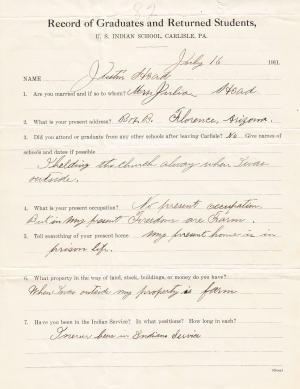 Record of Graduates and Returned Students,
U. S. INDIAN SCHOOL, CARLISLE, PA.
July 16 1911.
NAME Justin Head
1. Are you married and if so to whom? Mrs. Julia Head
2. What is your present address? Box B. Florence, Arizona.
3. Did you attend or graduate from any other schools after leaving Carlisle? No Give names of
schools and dates if possible
I helding the church alway when I was
outside.
4. What is your present occupation? No present occupation.
But on my present Freedom are Farm.
5. Tell something of your present home my present home is in
prison life.
6. What property in the way of land, stock, buildings, or money do you have?
When I was outside my property is farm
7. Have you been in the Indian Service? In what positions? How long in each?
I never been in Indians Service